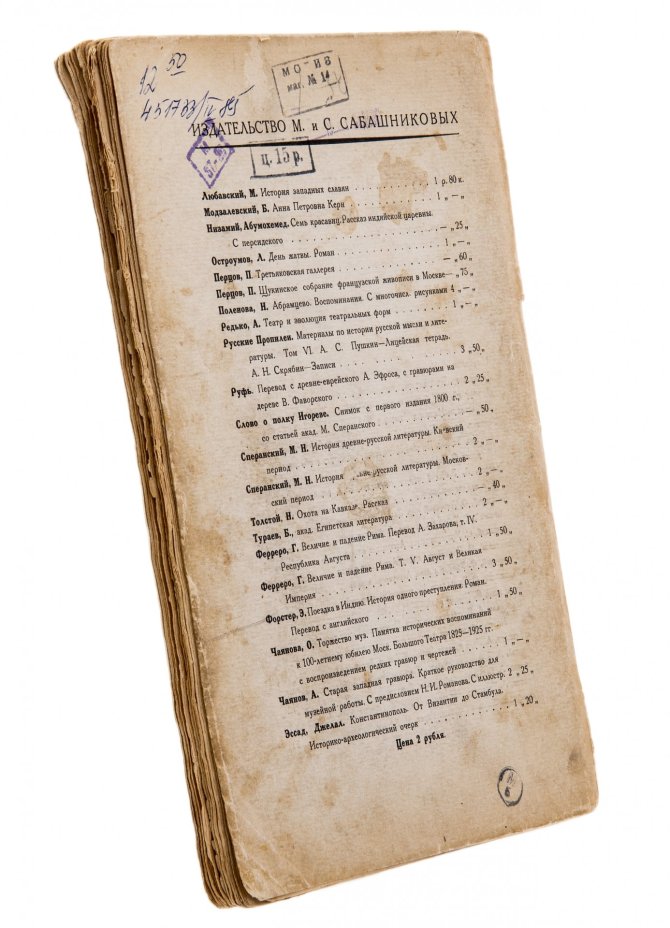 12 50
451733/IV 895
МОГИЗ
маг. № 14
ИЗДАТЕЛЬСТВО М. и С. САБАШНИКОВЫХ
ц. 15 р.
Любавский, М. История западных славян 1 р. 80 к.
Модзалевский, Б. Анна Петровна Керн 1 „—„
Низамий, Абумохемед. Семь красавиц. Рассказ индийской царевны.
С персидского — „25„
Остроумов, Л. День жатвы. Роман 1 „—„
Перцов, П. Третьяковская галлерея — „60„
Перцов, П. Щукинское собрание французской живописи в Москве — „75„
Поленова, Н. Абрамцево. Воспоминания. С многочисл. рисунками 4 „—„
Редько, А. Театр и эволюция театральных форм 1 „—„
Русские Пропилеи. Материалы по истории русской мысли и лите-
ратуры. Том VI. А. С. Пушкин—Лицейская тетрадь.
А. Н. Скрябин—Записи 3 „50„
Руфь. Перевод с древне-еврейского А. Эфроса, с гравюрами на
дереве В. Фаворского 2 „25„
Слово о полку Игореве. Снимок с первого издания 1800 г.,
со статьей акад. М. Сперанского — „50„
Сперанский, М. Н. История древне-русской литературы. Киевский
период 2 „—„
Сперанский, М. Н. История древне-русской литературы. Москов-
ский период 2 „—„
Толстой, Н. Охота на Кавказе. Рассказ — „40„
Тураев, Б., акад. Египетская литература 2 „—„
Ферреро, Г. Величие и падение Рима. Перевод А. Захарова, т. IV.
Республика Августа 1 „50„
Ферреро, Г. Величие и падение Рима. Т. V. Август и Великая
Империя 3 „50„
Форстер, Э. Поездка в Индию. История одного преступления. Роман.
Перевод с английского 1 „50„
Чаянова, О. Торжество муз. Памятка исторических воспоминаний
к 100-летнему юбилею Моск. Большого Театра 1825—1925 гг.
с воспроизведением редких гравюр и чертежей 1 „—„
Чаянов, А. Старая западная гравюра. Краткое руководство для
музейной работы. С предисловием Н. И. Романова. С иллюстр. 2 „25„
Эссад, Джелал. Константинополь. От Византии до Стамбула.
Историко-археологический очерк 1 „20„
Цена 2 рубля.